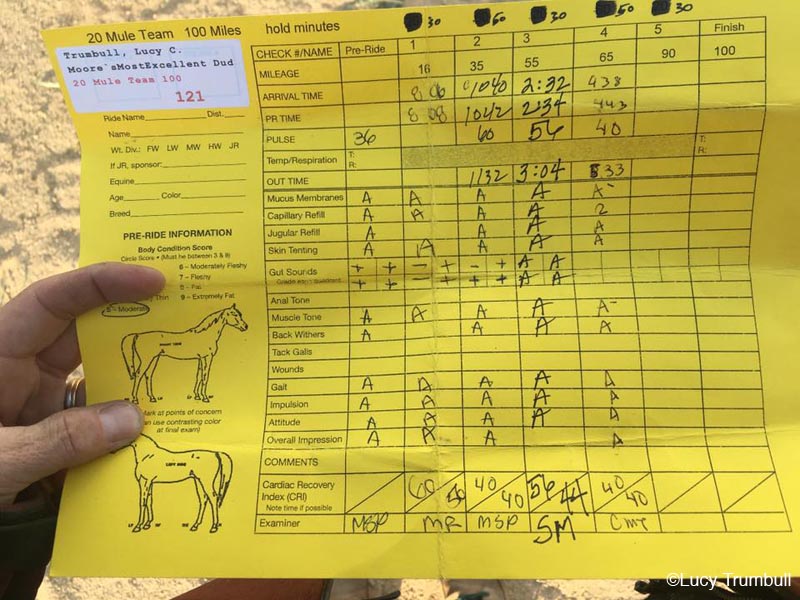 20 Mule Team 100 Miles hold minutes 30 60 30 50 30
Trumbull, Lucy C.
Moore`sMostExcellent Dud
20 Mule Team 100
121
Ride Name Dist.
Name
Wt. Div.: FW LW MW HW JR
If JR, sponsor:
Equine
Age Color
Breed
PRE-RIDE INFORMATION
Body Condition Score
Circle Score • (Must be between 3 & 8)
6 – Moderately Fleshy
7 – Fleshy
8 – Fat
Thin 9 – Extremely Fat
5 – Moderate
RIGHT SIDE
Mark at points of concern
can use contrasting color
at final exam)
LEFT SIDE
LF LR RR RF
CHECK #/NAME Pre-Ride 1 2 3 4 5 Finish
MILEAGE 16 35 55 65 90 100
ARRIVAL TIME 8 06 1040 2:32 438
PR TIME 8 08 1042 2:34 443
PULSE 36 60 56 40
Temp/Respiration T: R: T: R:
OUT TIME 1132 3:04 533
Mucus Membranes A A A A A-
Capillary Refill A A A A 2
Jugular Refill A A A A
Skin Tenting A A A A
Gut Sounds + + – + – + A A
Grade each quadrant + + + + + + A A
Anal Tone
Muscle Tone A A A A A-
Back Withers A A A A
Tack Galls
Wounds
Gait A A A A A
Impulsion A A A A A
Attitude A A A A A
Overall Impression A A A A
COMMENTS
Cardiac Recovery Index (CRI) 60 40 40 56 44 40 40
Note time if possible
Examiner MSP MR MSP SM CMT
©Lucy Trumbull